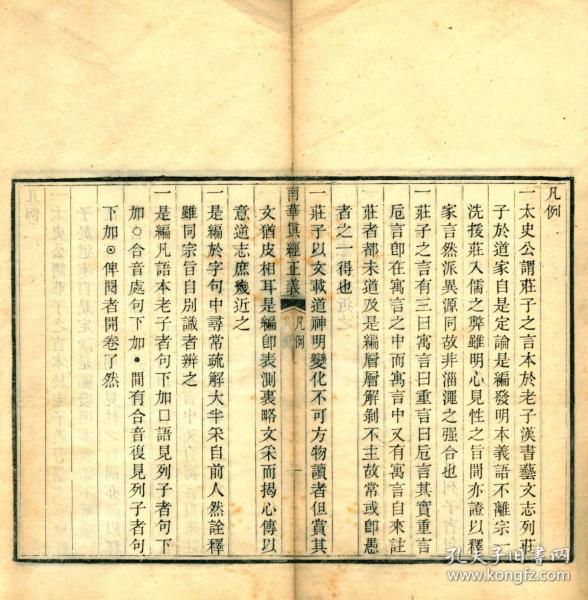 凡例
一太史公謂莊子之言本於老子漢書藝文志列莊
子於道家自是定論是編發明本義語不離宗一
洗援莊入儒之弊雖明心見性之旨間亦證以釋
家言然派異源同故非淄澠之强合也
一莊子之言有三曰寓言曰重言曰卮言其實重言
卮言卽在寓言之中而寓言中又有寓言自來註
莊者都未道及是編層層解剝不主故常或卽愚
者之一得也
南華眞經正義
凡例
一
一莊子以文載道神明變化不可方物讀者但賞其
文猶皮相耳是編卽表測裏略文釆而揭心傳以
意逆志庶幾近之
一是編於字句中尋常疏解大半采自前人然詮釋
雖同宗旨自別識者辨之
一是編凡語本老子者句下加口語見列子者句下
加○合音處句下加●間有合音復見列子者句
下加⊙俾閱者開卷了然
孔夫子旧书网
www.kongfz.com